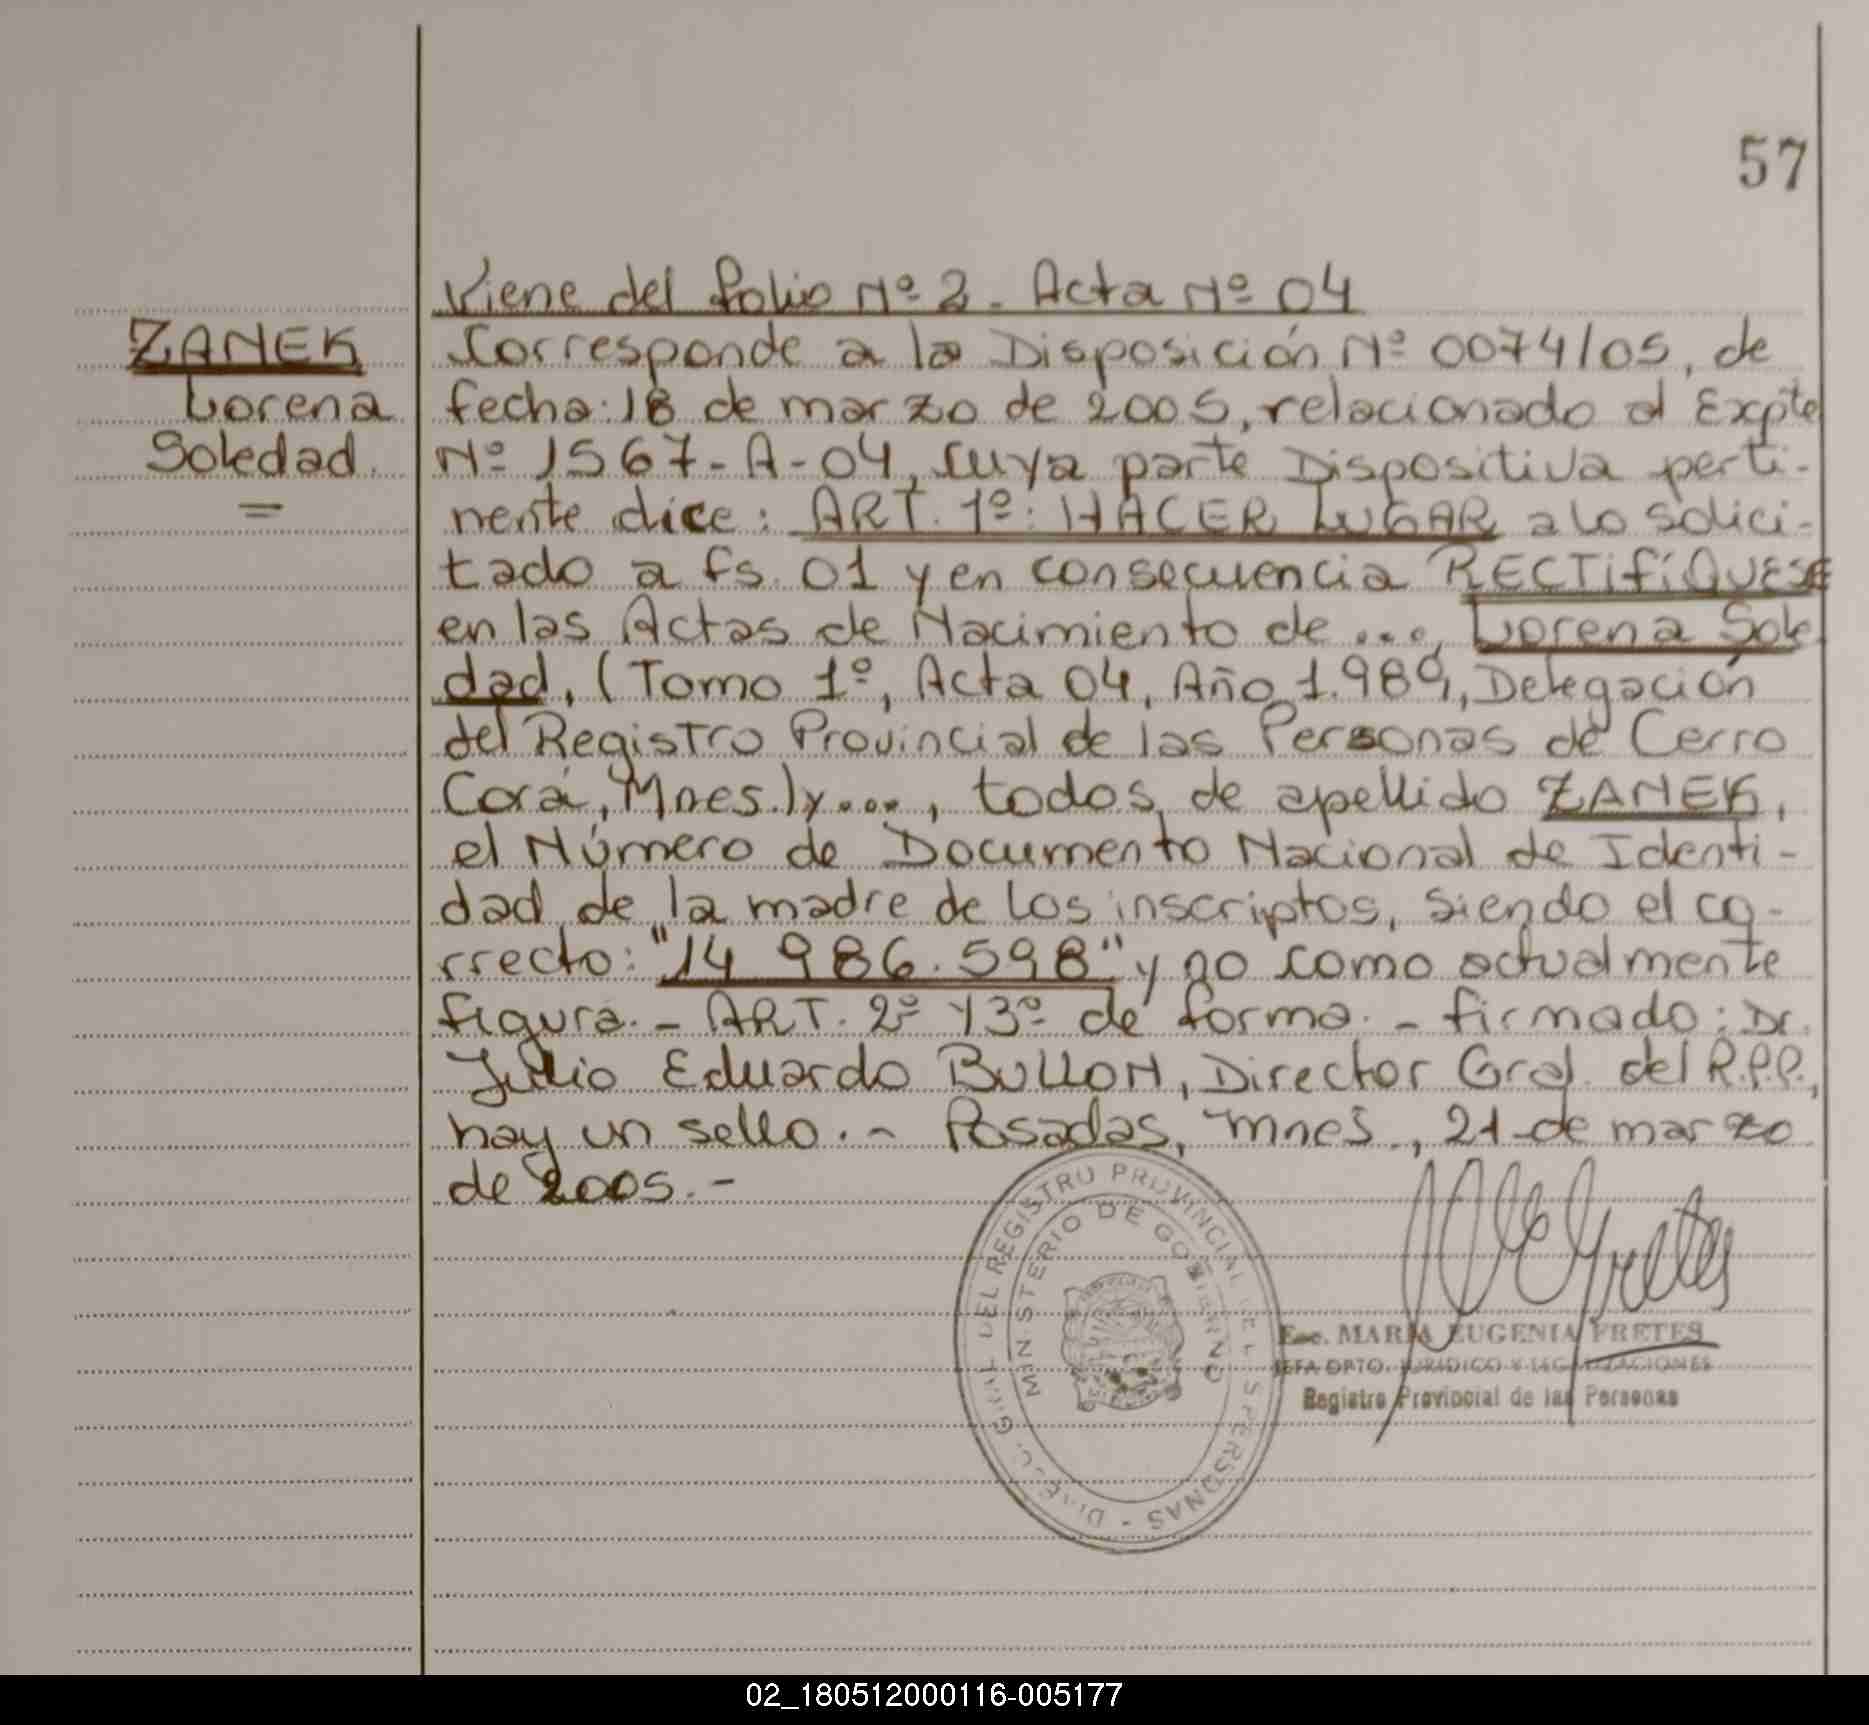 57
Viene del folio Nº 2. Acta Nº 04
ZANEK
Lorena
Soledad.
=
Corresponde a la Disposición Nº 0074/05, de
fecha: 18 de marzo de 2005, relacionado al Expte
Nº 1567-A-04, cuya parte Dispositiva perti-
nente dice: ART. 1º: HACER LUGAR a lo solici-
tado a fs. 01 y en consecuencia RECTIFÍQUESE
en las Actas de Nacimiento de ..., Lorena Sole
dad, (Tomo 1º, Acta 04, Año 1.989, Delegación
del Registro Provincial de las Personas de Cerro
Corá, Mnes.) y ...., todos de apellido ZANEK,
el Número de Documento Nacional de Identi-
dad de la madre de los inscriptos, siendo el co-
rrecto: "14 986.598" y no como actualmente
figura. - ART. 2º y 3º de forma. - firmado: Dr.
Julio Eduardo BULLON, Director Gral. del R.P.P.,
hay un sello. - Posadas, Mnes., 21 de marzo
de 2005. -
DIRECC. GRAL. DEL REGISTRO PROVINCIAL DE LAS PERSONAS -
MINISTERIO DE GOBIERNO
Esc. MARIA EUGENIA FRETES
JEFA DPTO. JURIDICO Y LEGALIZACIONES
Registro Provincial de las Personas
02_180512000116-005177